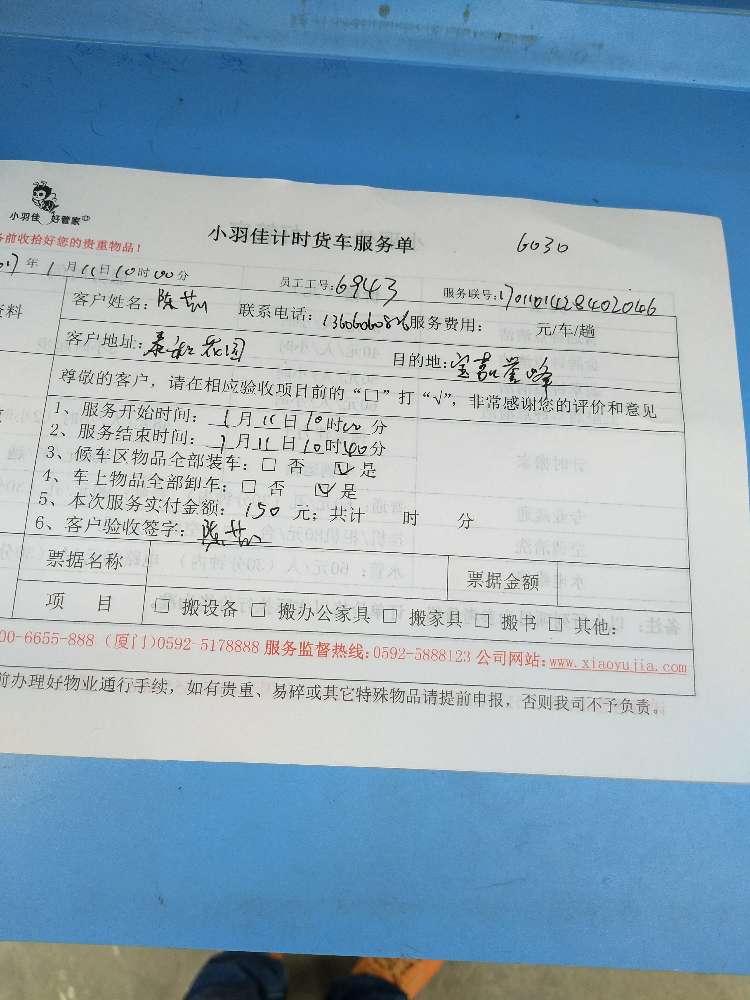 小羽佳 好管家
前收拾好您的贵重物品！
小羽佳计时货车服务单
6030
年1月11日10时00分
员工工号：6943
服务联号：1701101428402046
客户姓名：陈
联系电话：
服务费用： 元/车/趟
客户地址：泰和花园
目的地：宝嘉誉峰
尊敬的客户，请在相应验收项目前的“□”打“√”，非常感谢您的评价和意见
1、服务开始时间：1月11日10时00分
2、服务结束时间：1月11日10时40分
3、候车区物品全部装车：□ 否 ☑ 是
4、车上物品全部卸车：□ 否 ☑ 是
5、本次服务实付金额：150元；共计 时 分
6、客户验收签字：陈
票据名称
票据金额
项 目
□ 搬设备 □ 搬办公家具 □ 搬家具 □ 搬书 □ 其他：
00-6655-888 (厦门)0592-5178888 服务监督热线：0592-5888123 公司网站：www.xiaoyujia.com
前办理好物业通行手续，如有贵重、易碎或其它特殊物品请提前申报，否则我司不予负责。